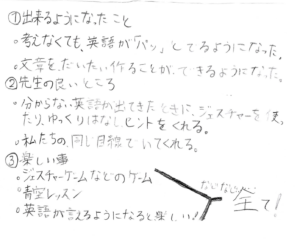 ①出来るようになったこと
○考えなくても、英語が「パッ」とでるようになった。
○文章をだいたい作ることが、できるようになった。
②先生の良いところ
○分からない英語が出てきたときに、ジェスチャーを使っ
たり、ゆっくりはなしヒントをくれる。
○私たちの同じ目線でいてくれる。
③楽しい事
○ジェスチャーゲームなどのゲーム
○青空レッスン
○英語が言えるようになると楽しい!
全て!